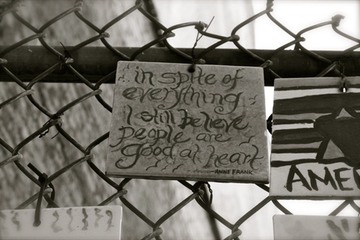 in spite of
everything
i still believe
people are
good at heart
ANNE FRANK
AMER